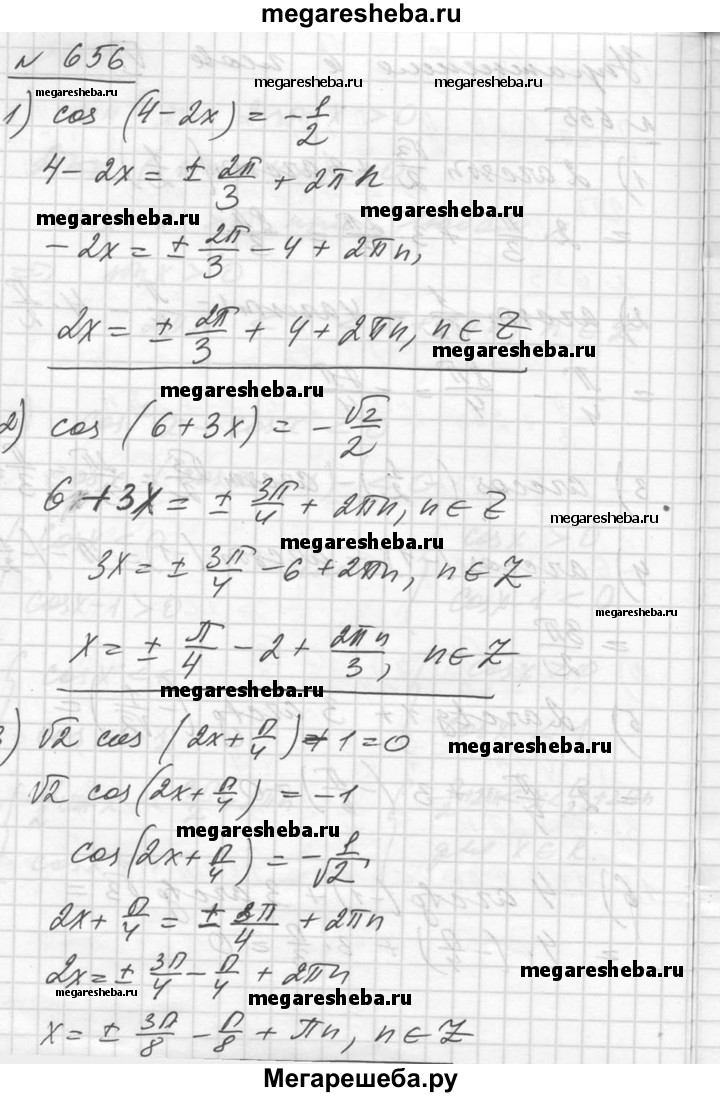 megaresheba.ru
№ 656
megaresheba.ru megaresheba.ru megaresheba.ru
1) cos (4-2x) = -1/2
4-2x = ± 2π/3 + 2πn
megaresheba.ru megaresheba.ru
-2x = ± 2π/3 - 4 + 2πn,
2x = ± 2π/3 + 4 + 2πn, n ∈ Z
megaresheba.ru
megaresheba.ru
2) cos (6+3x) = -√2/2
6+3x = ± 3π/4 + 2πn, n ∈ Z
megaresheba.ru
megaresheba.ru
3x = ± 3π/4 - 6 + 2πn, n ∈ Z
megaresheba.ru
x = ± π/4 - 2 + 2πn/3, n ∈ Z
megaresheba.ru
3) √2 cos (2x + π/4) + 1 = 0
megaresheba.ru
√2 cos(2x + π/4) = -1
megaresheba.ru
cos(2x + π/4) = -1/√2
2x + π/4 = ± 3π/4 + 2πn
2x = ± 3π/4 - π/4 + 2πn
megaresheba.ru
megaresheba.ru megaresheba.ru
x = ± 3π/8 - π/8 + πn, n ∈ Z
Мегарешеба.ру